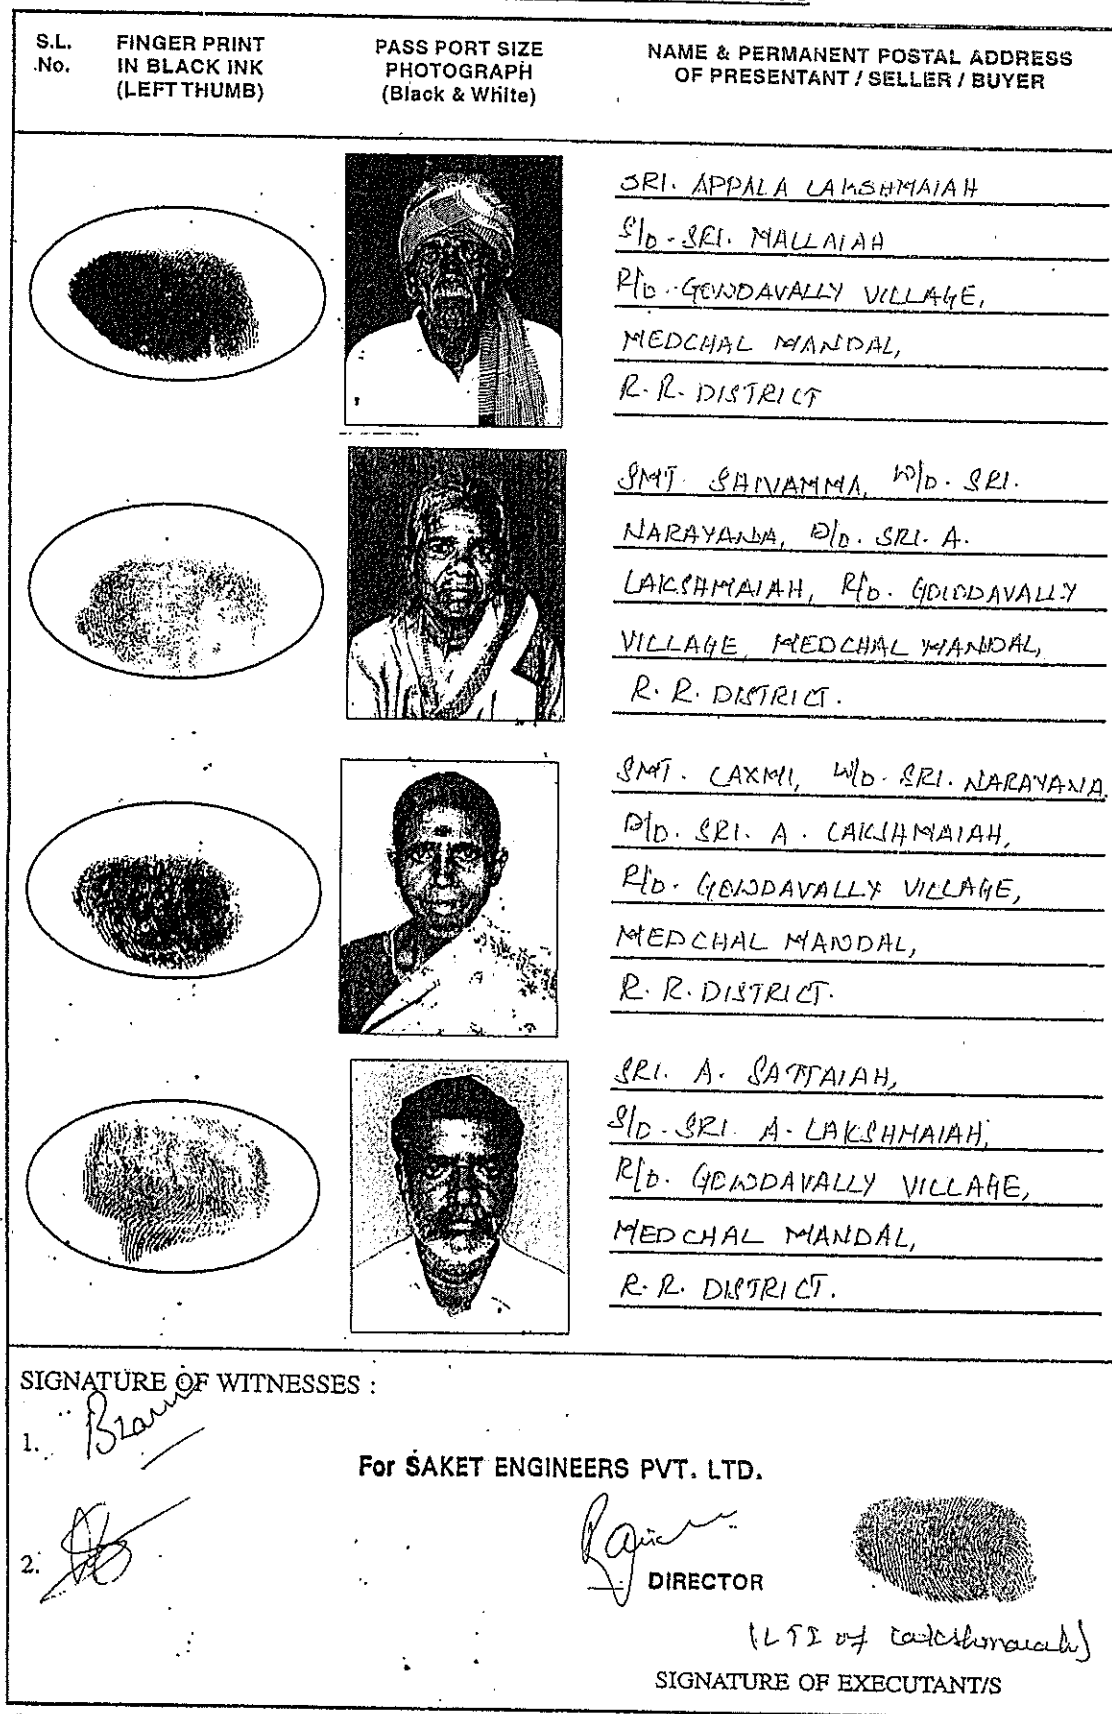 S.L. No. FINGER PRINT IN BLACK INK (LEFT THUMB) PASS PORT SIZE PHOTOGRAPH (Black & White) NAME & PERMANENT POSTAL ADDRESS OF PRESENTANT / SELLER / BUYER
SRI. APPALA LAKSHMAIAH
S/o. SRI. MALLAIAH
R/o. GOWDAVALLY VILLAGE,
MEDCHAL MANDAL,
R.R. DISTRICT
SMT. SAIVAMMA, W/o. SRI.
NARAYANA, D/o. SRI. A.
LAKSHMAIAH, R/o. GOWDAVALLY
VILLAGE, MEDCHAL MANDAL,
R.R. DISTRICT.
SMT. LAXMI, W/o. SRI. NARAYANA.
D/o. SRI. A. LAKSHMAIAH,
R/o. GOWDAVALLY VILLAGE,
MEDCHAL MANDAL,
R.R. DISTRICT.
SRI. A. SATTAIAH,
S/o. SRI. A. LAKSHMAIAH,
R/o. GOWDAVALLY VILLAGE,
MEDCHAL MANDAL,
R.R. DISTRICT.
SIGNATURE OF WITNESSES :
1.
For SAKET ENGINEERS PVT. LTD.
2.
DIRECTOR
(LTI of Lakshmaiah)
SIGNATURE OF EXECUTANT/S